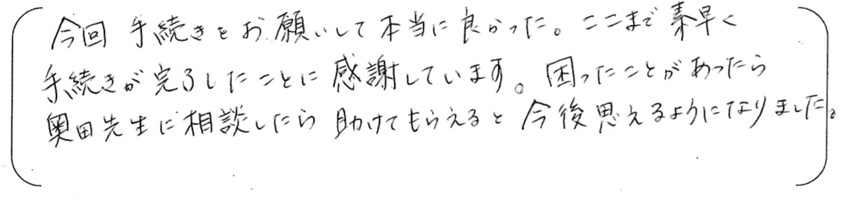 今回 手続きをお願いして本当に良かった。ここまで素早く
手続きが完了したことに感謝しています。困ったことがあったら
奥田先生に相談したら 助けてもらえると 今後思えるようになりました。